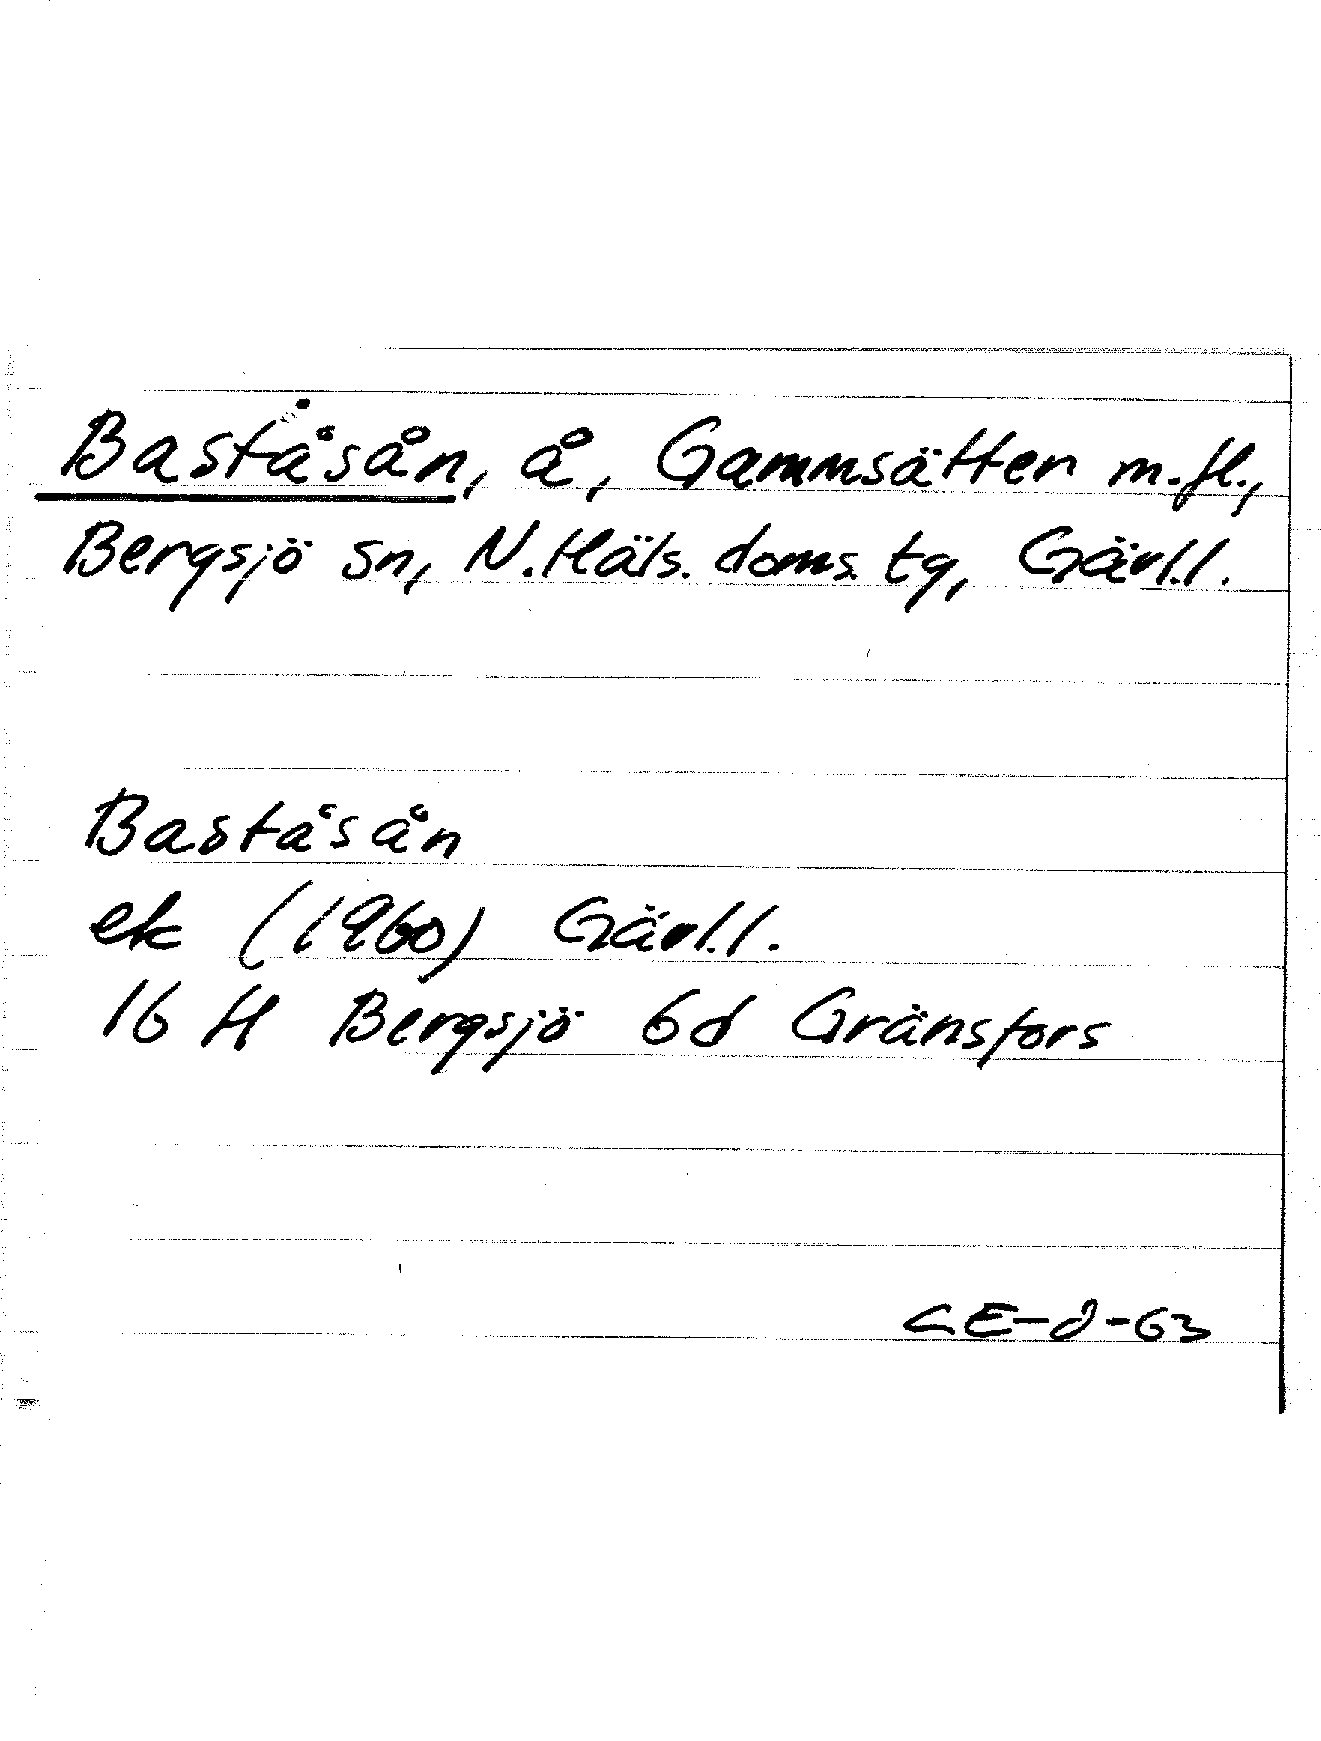 Baståsån, å, Gammsätter m.fl.,
Bergsjö sn, N.Häls. doms. tg, Gävl.l.
Baståsån
ek (1960) Gävl.l.
16 H Bergsjö 6d Gränsfors
CE-d-63